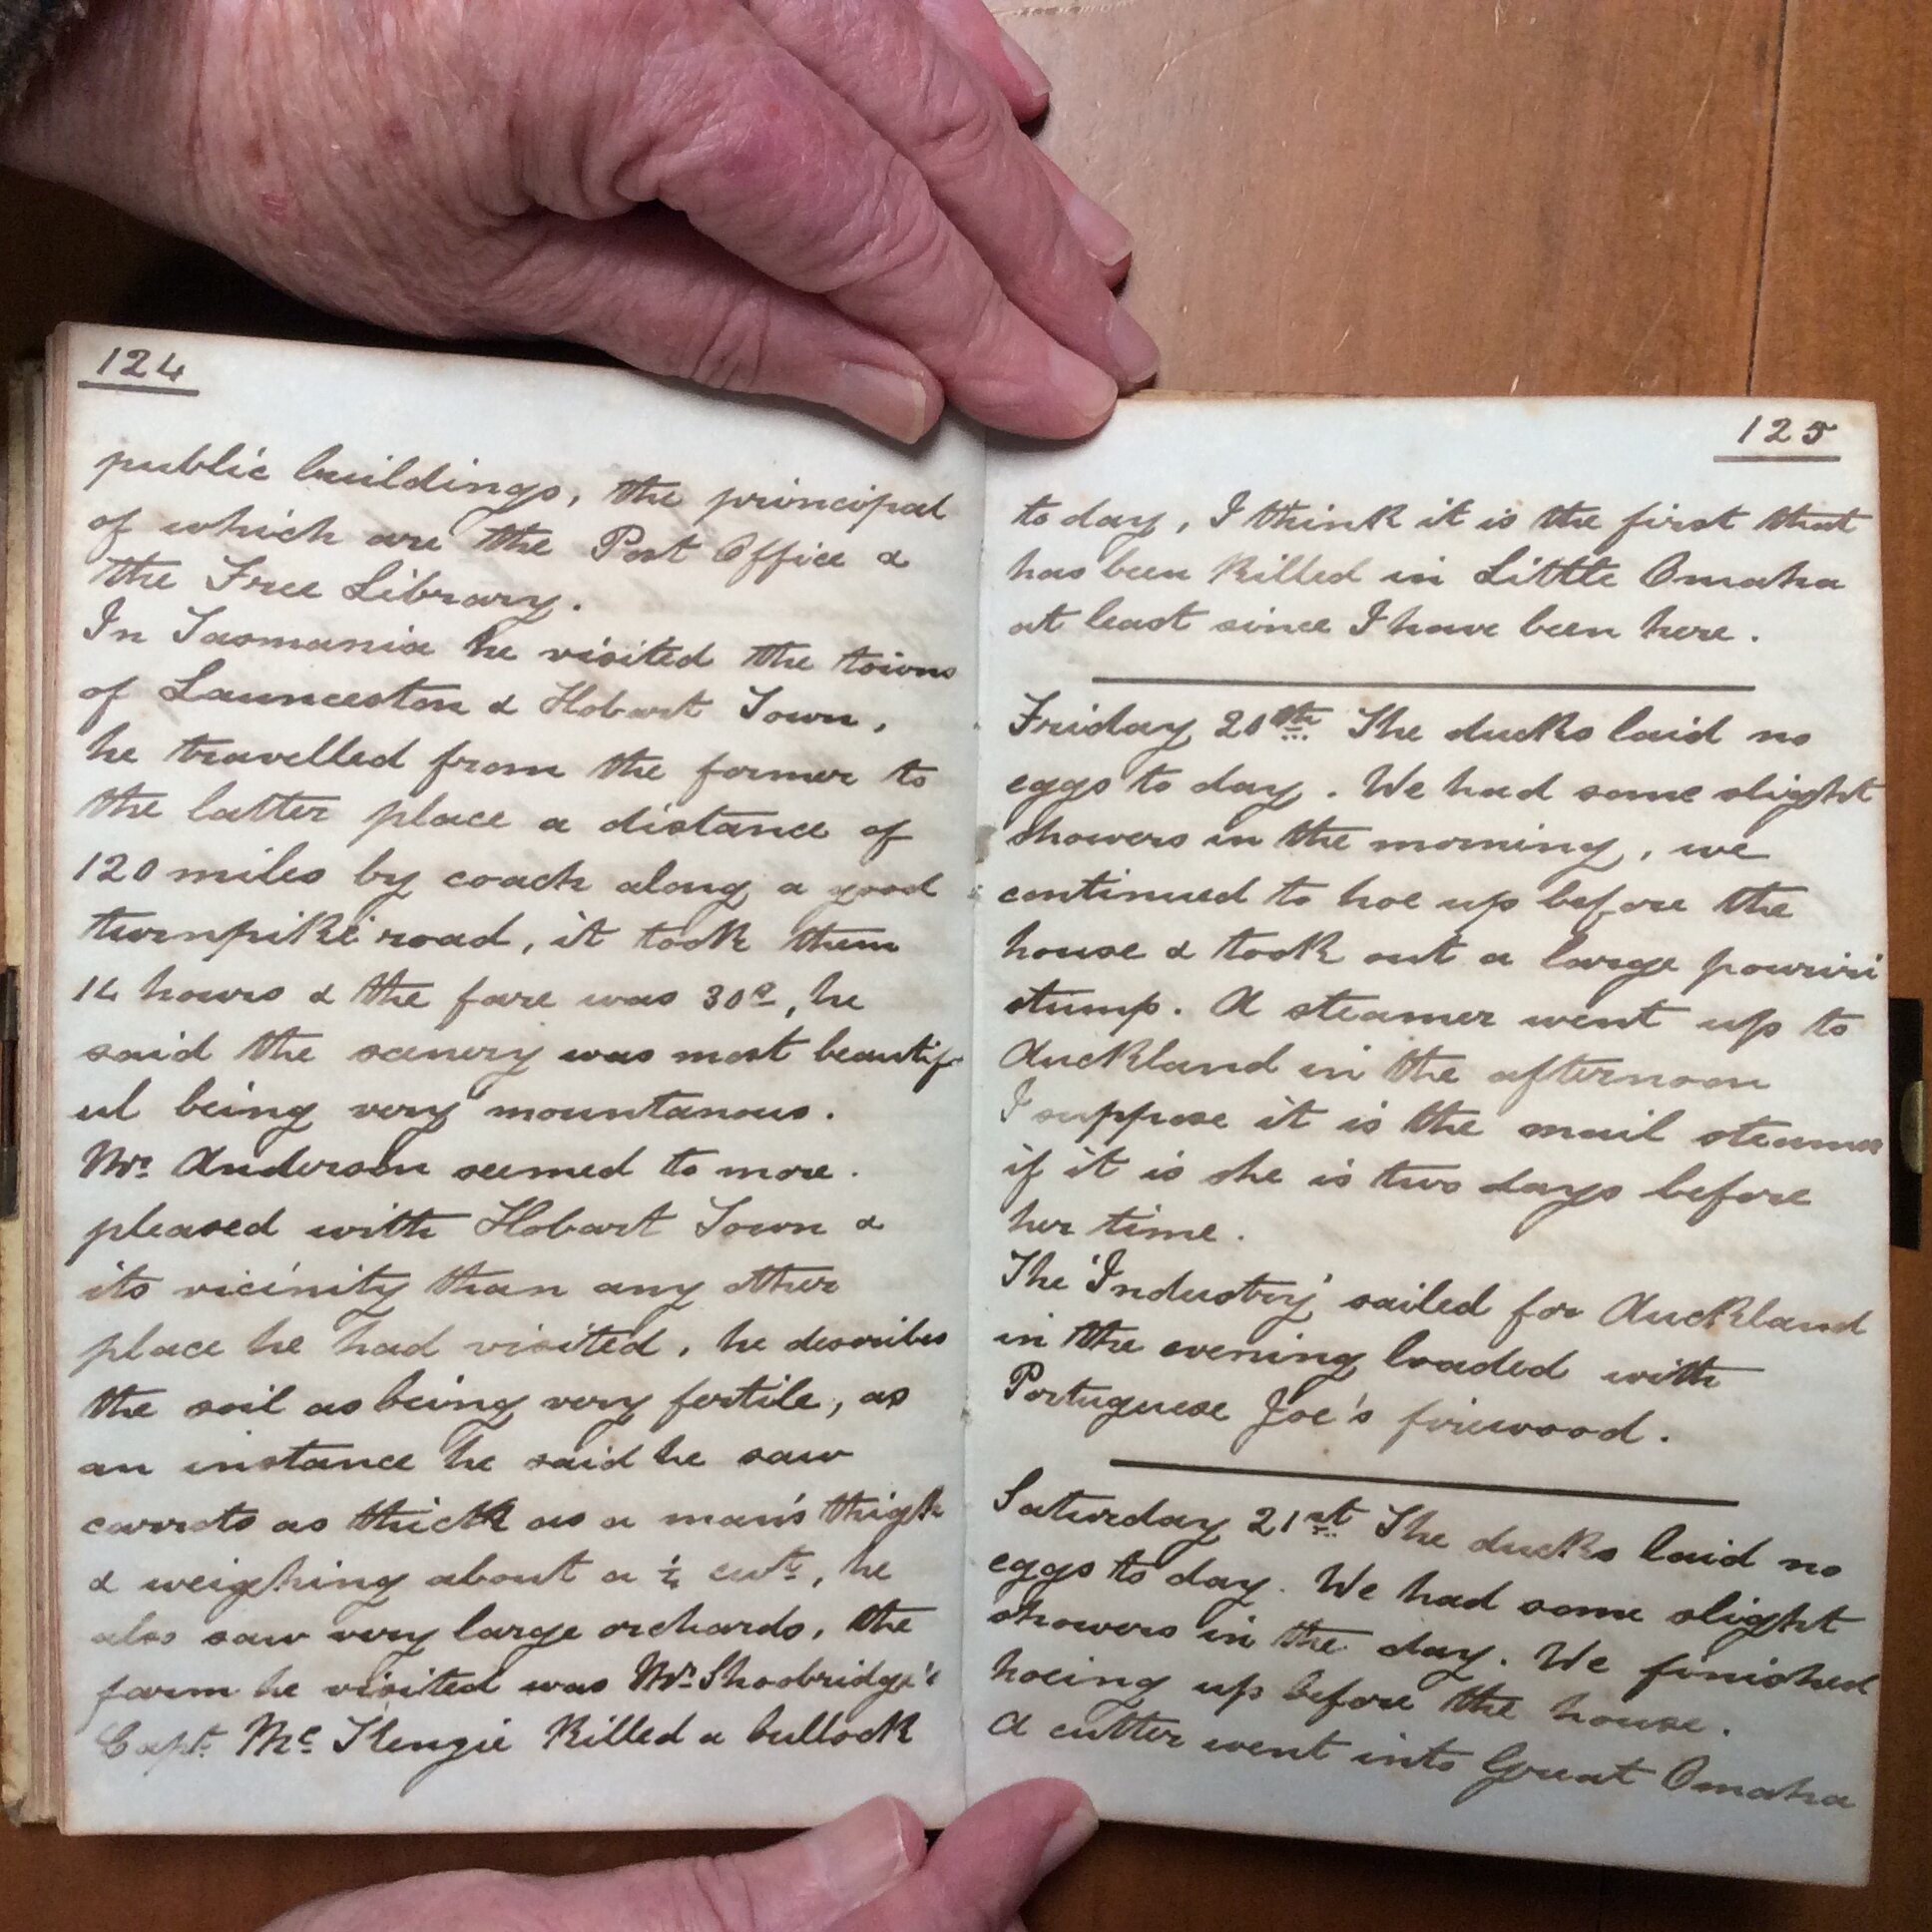 124
public buildings, the principal
of which are the Post Office &
the Free Library.
In Tasmania he visited the towns
of Launceston & Hobart Town,
he travelled from the former to
the latter place a distance of
120 miles by coach along a good
turnpike road, it took them
14 hours & the fare was 30s, he
said the scenery was most beautif-
ul being very mountanous.
Mr. Anderson seemed to more.
pleased with Hobart Town &
its vicinity than any other
place he had visited, he describes
the soil as being very fertile, as
an instance he said he saw
carrots as thick as a man's thigh
& weighing about a ¼ cwt, he
also saw very large orchards, the
farm he visited was Mr. Shoobridge's
Capt. Mc Kenzie killed a bullock
125
to day, I think it is the first that
has been killed in Little Omaha
at least since I have been here.
Friday 20th The ducks laid no
eggs to day. We had some slight
showers in the morning, we
continued to hoe up before the
house & took out a large pouriri
stump. A steamer went up to
Auckland in the afternoon
I suppose it is the mail steamer
if it is she is two days before
her time.
The 'Industry' sailed for Auckland
in the evening loaded with
Portuguese Joe's firewood.
Saturday 21st The ducks laid no
eggs to day. We had some slight
showers in the day. We finished
hoeing up before the house.
A cutter went into Great Omaha